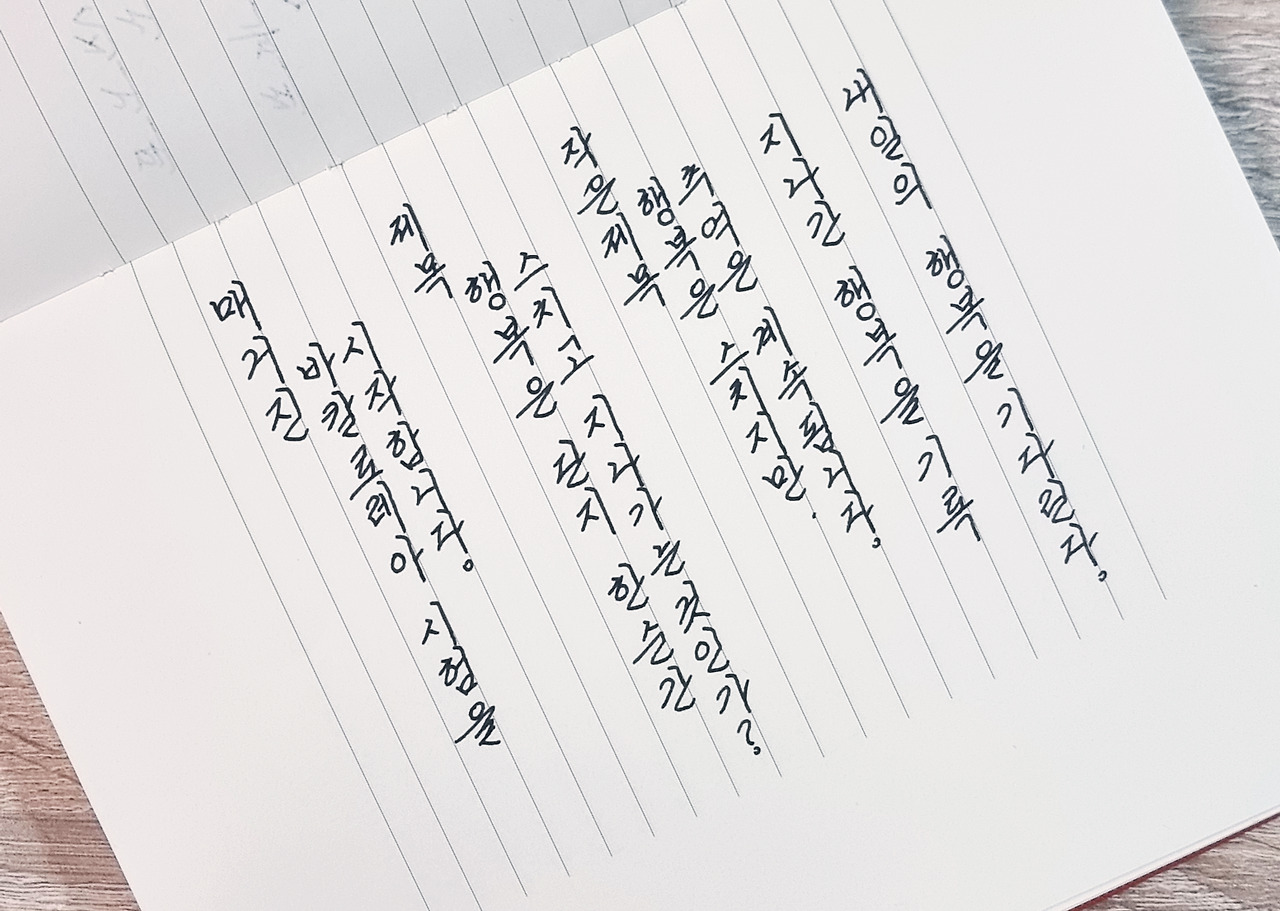 매거진
바칼로레아 시험을
시작합니다.
제목
행복은 단지 한순간
스치고 지나가는 것인가?
작은제목
행복은 스치지만.
추억은 계속됩니다.
지나간 행복을 기록
내일의 행복을 기다린다.